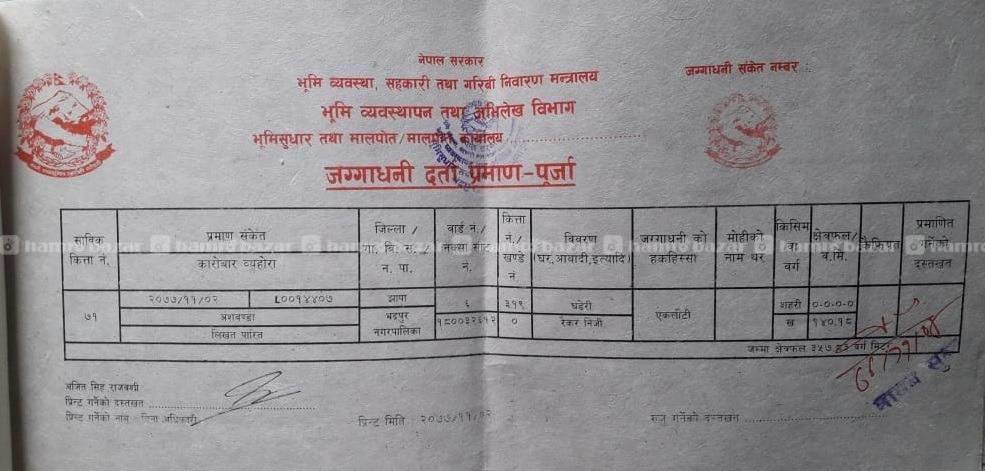 नेपाल सरकार
भूमि व्यवस्था, सहकारी तथा गरिबी निवारण मन्त्रालय
जग्गाधनी संकेत नम्बर
भूमि व्यवस्थापन तथा अभिलेख विभाग
भूमिसुधार तथा मालपोत/मालपोत कार्यालय
जग्गाधनी दर्ता प्रमाण-पूर्जा
साविक कित्ता नं.
प्रमाण संकेत
कारोबार व्यहोरा
जिल्ला / गा. बि. स. / न. पा.
वार्ड नं. / नक्सा सीट नं.
कित्ता नं. / खण्डे नं
विवरण (घर, आवादी, इत्यादि)
जग्गाधनी को हकहिस्सा
मोहीको नाम थर
किसिम वा वर्ग
क्षेत्रफल/ व.मि.
कैफियत
प्रमाणित दस्तखत
७१
२०७७/११/०२ L००१४४०७ झापा ६ ३१९ घडेरी एकलौटी शहरी ०-०-०-०
अंशवण्डा भद्रपुर नगरपालिका ० रैकर निजी ख १४०.१८
लिखत पारित
जम्मा क्षेत्रफल वर्ग मिटर
अजित सिंह राजवंशी
प्रिन्ट गर्नेको दस्तखत
प्रिन्ट गर्नेको नाम
प्रिन्ट मिति : २०७७/११/०२
रुजु गर्नेको दस्तखत
hamrobazar